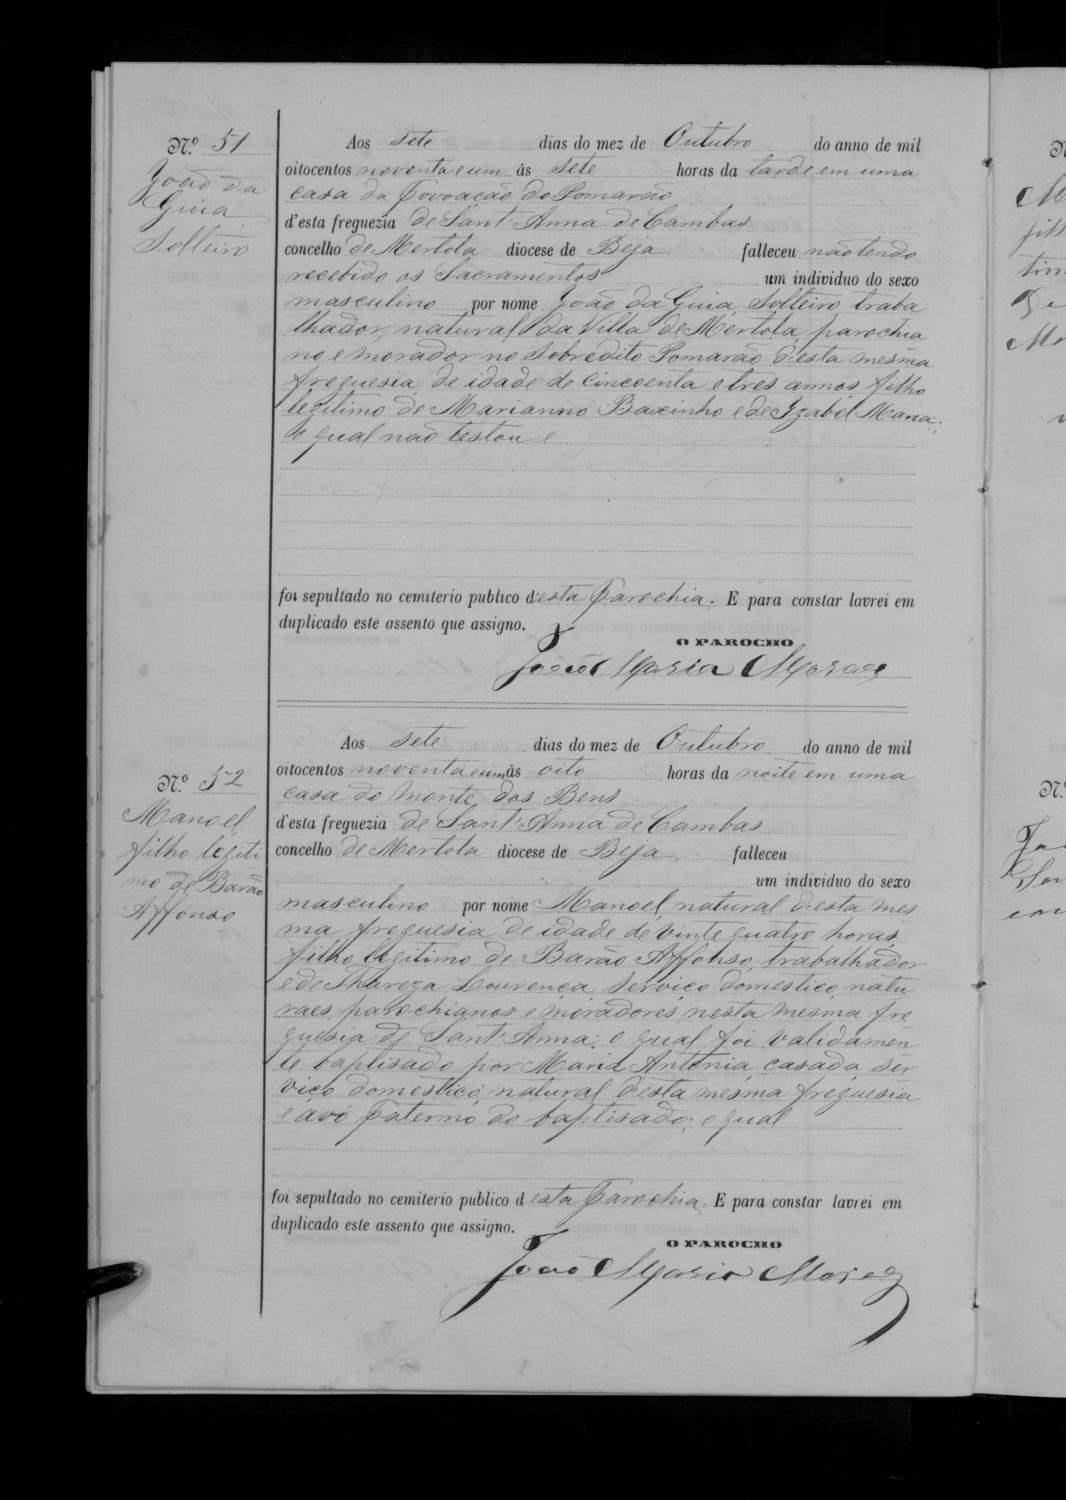 Nº 51
João da
Guia
Solteiro
Aos sete dias do mez de Outubro do anno de mil
oitocentos noventa e um ás sete horas da tarde em uma
casa da Povoação do Pomarão
d'esta freguezia de Sant'Anna de Cambas
concelho de Mertola diocese de Beja falleceu não tendo
recebido os Sacramentos um individuo do sexo
masculino por nome João da Guia, Solteiro, traba
lhador, natural da Villa de Mertola, parochia
no e morador no sobredito Pomarão d'esta mesma
freguesia de idade de cincoenta e tres annos, filho
legitimo de Marianno Baixinho e de Izabel Maria;
o qual não testou e
foi sepultado no cemiterio publico d'esta Parochia. E para constar lavrei em
duplicado este assento que assigno.
O PAROCHO
João Maria Moraes
Nº 52
Manoel
filho legiti
mo de Barão
Affonso
Aos sete dias do mez de Outubro do anno de mil
oitocentos noventa e um ás oito horas da noite em uma
casa do Monte dos Bens
d'esta freguezia de Sant'Anna de Cambas
concelho de Mertola diocese de Beja falleceu
um individuo do sexo
masculino por nome Manoel, natural d'esta mes
ma freguesia de idade de vinte quatro horas,
filho legitimo de Barão Affonso, trabalhador
e de Thareza Lourença, serviço domestico, natu
raes, parochianos e moradores nesta mesma fre
guesia de Sant'Anna; o qual foi validamen
te baptisado por Maria Antonia, casada, ser
viço domestico, natural d'esta mesma freguesia
e avó Paterno do baptisado; o qual
foi sepultado no cemiterio publico d'esta Parochia. E para constar lavrei em
duplicado este assento que assigno.
O PAROCHO
João Maria Moraes